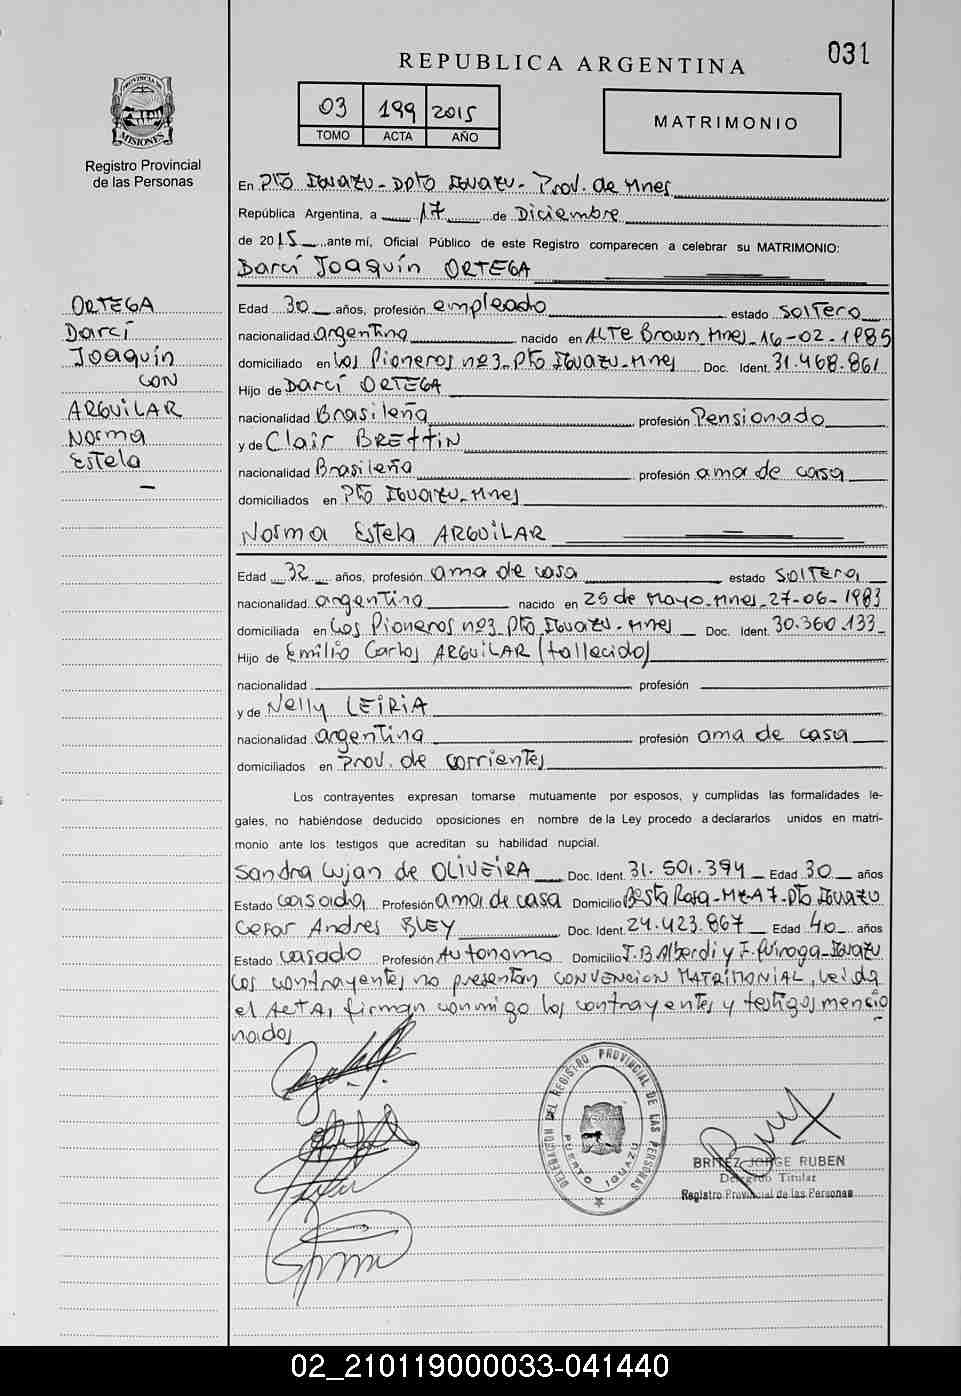 031
REPUBLICA ARGENTINA
03 199 2015
TOMO ACTA AÑO
MATRIMONIO
PROVINCIA DE MISIONES
Registro Provincial
de las Personas
En Pto Iguazu - Dpto Iguazu - Prov. de Mnes
República Argentina, a 17 de Diciembre
de 2015 ante mí, Oficial Público de este Registro comparecen a celebrar su MATRIMONIO:
Darcí Joaquín ORTEGA
ORTEGA
Darcí
Joaquín
CON
ARGUILAR
Norma
Estela
Edad 30 años, profesión empleado estado soltero
nacionalidad argentina nacido en Alte Brown Mnes - 16-02-1985
domiciliado en Los Pioneros nº3 - Pto Iguazu - Mnes Doc. Ident. 31.468.861
Hijo de Darcí ORTEGA
nacionalidad Brasileña profesión Pensionado
y de Clair BRETTIN
nacionalidad Brasileña profesión ama de casa
domiciliados en Pto Iguazu - Mnes
Norma Estela ARGUILAR
Edad 32 años, profesión ama de casa estado soltera
nacionalidad argentina nacido en 25 de Mayo - Mnes - 27-06-1983
domiciliada en Los Pioneros nº3 Pto Iguazu - Mnes Doc. Ident. 30.360.133
Hijo de Emilio Carlos ARGUILAR (fallecido)
nacionalidad profesión
y de Nelly LEIRIA
nacionalidad argentina profesión ama de casa
domiciliados en Prov. de corrientes
Los contrayentes expresan tomarse mutuamente por esposos, y cumplidas las formalidades le-
gales, no habiéndose deducido oposiciones en nombre de la Ley procedo a declararlos unidos en matri-
monio ante los testigos que acreditan su habilidad nupcial.
Sandra Lujan de OLIVEIRA Doc. Ident. 31.501.394 Edad 30 años
Estado casada Profesión ama de casa Domicilio Santa Rosa - Pto Iguazu
Cesar Andres BLEY Doc. Ident. 24.423.867 Edad 40 años
Estado casado Profesión Autonomo Domicilio J.B Alberdi y F. Quiroga - Iguazu
Los contrayentes no presentan CONVENCION MATRIMONIAL, Leida
el ActA, firman conmigo los contrayentes y testigos mencio
nados
DELEGACION DEL REGISTRO PROVINCIAL DE LAS PERSONAS
PUERTO IGUAZU
BRITEZ JORGE RUBEN
Delegado Titular
Registro Provincial de las Personas
02_210119000033-041440